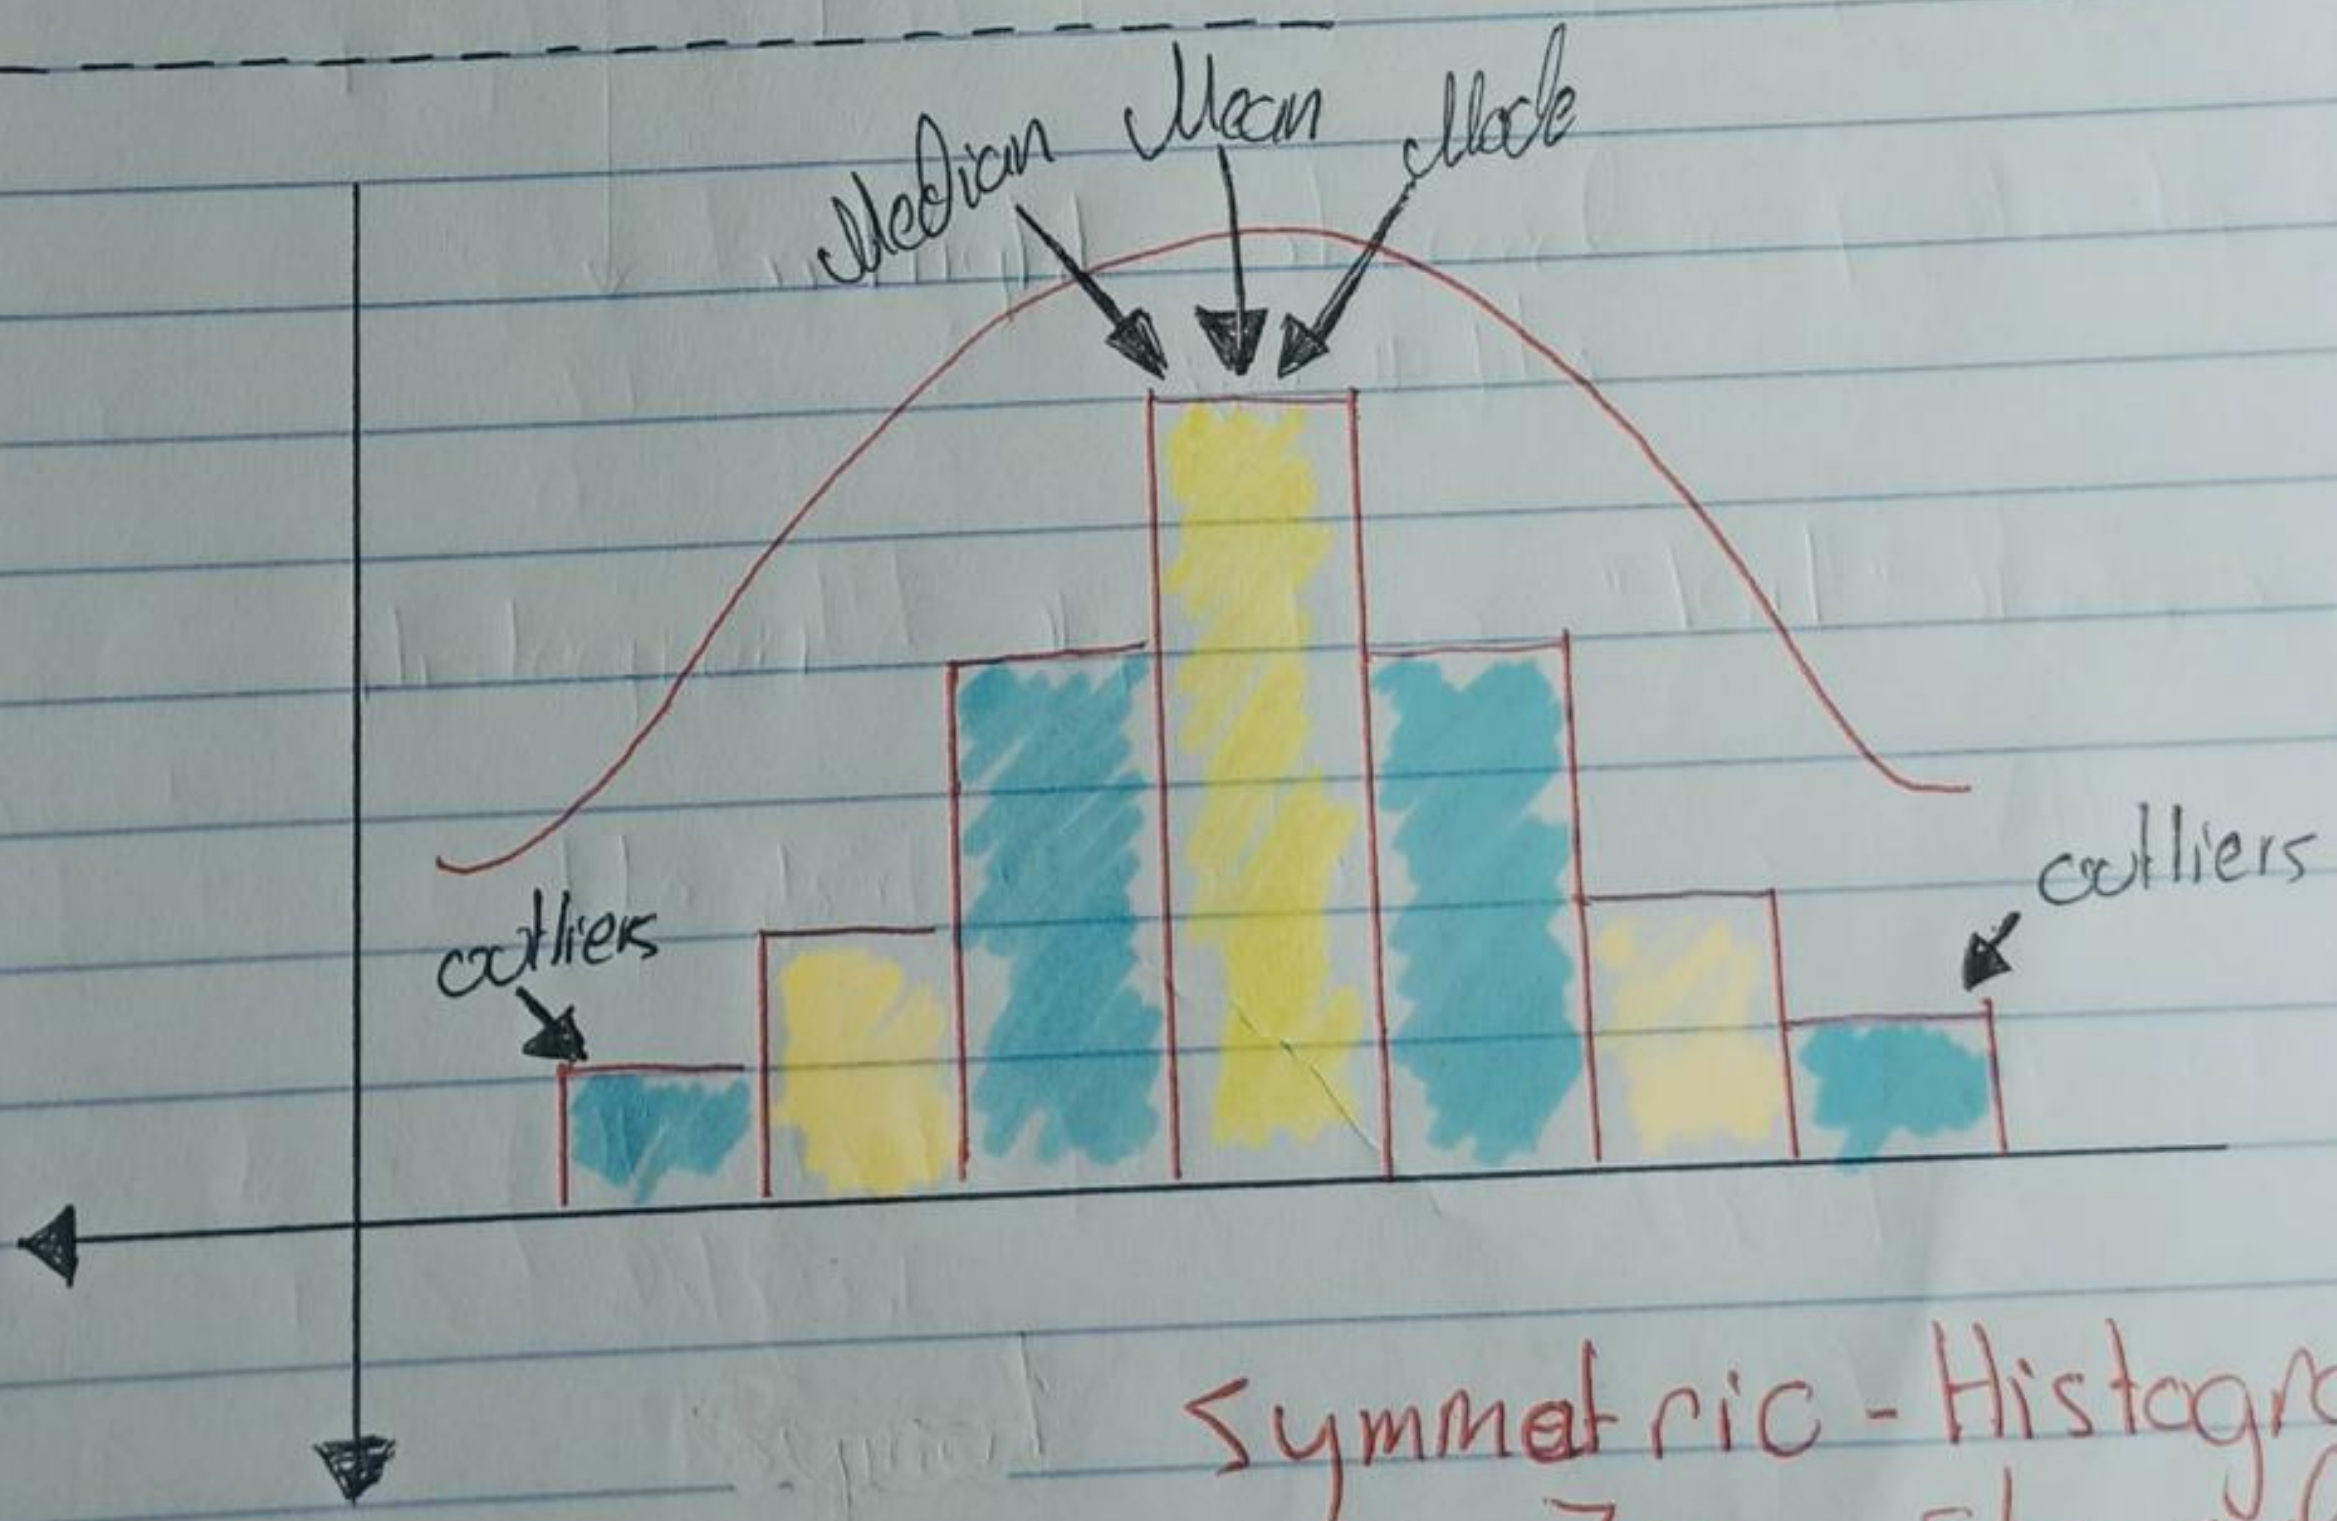 Median Mean Mode
outliers
outliers
Symmetric - Histogra